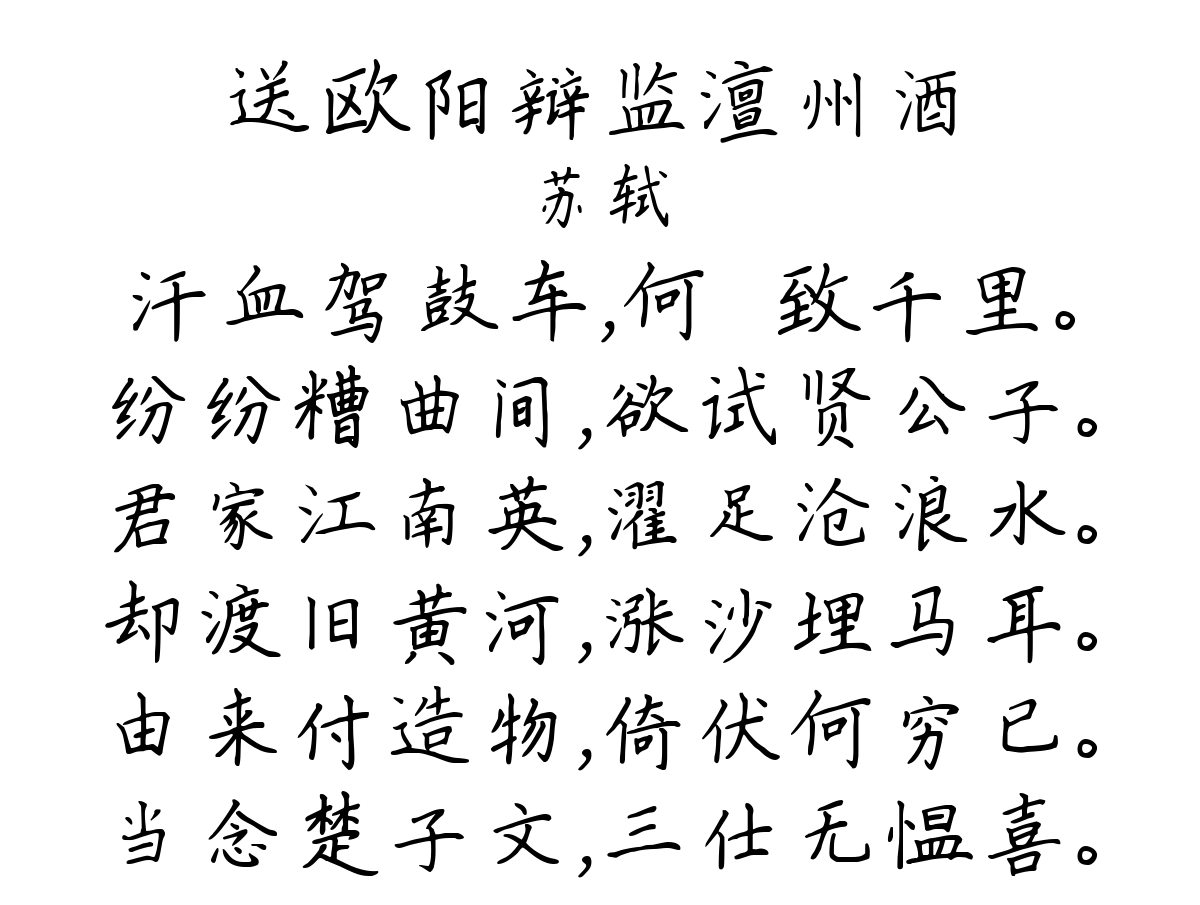 送欧阳辩监澶州酒
苏轼
汗血驾鼓车,何 致千里。
纷纷糟曲间,欲试贤公子。
君家江南英,濯足沧浪水。
却渡旧黄河,涨沙埋马耳。
由来付造物,倚伏何穷已。
当念楚子文,三仕无愠喜。